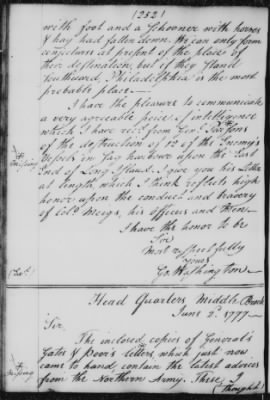 (252)
with foot and a Schooner with horses
& hay had fallen down. We can only form
conjectures at present of the place of
their destination, but if they stand
Southward, Philadelphia is the most
probable place —
I have the pleasure to communicate
a very agreeable piece of intelligence
which I have recd. from Genl. Parsons
of the destruction of 12 of the Enemy's
Vessels in Sag harbour upon the East
End of Long Island. I give you his Letter
at length, which I think reflects high
honor upon the conduct and bravery
of Colo. Meigs, his officers and Men.
I have the honor to be
Sir
Most respectfully
Yours
Go. Washington —
Head Quarters Middle Brook
June 2d. 1777 —
Sir,
The inclosed copies of Generals
Gates & Poor's Letters, which just now
came to hand, contain the latest advices
from the Northern Army. These I
(thought)